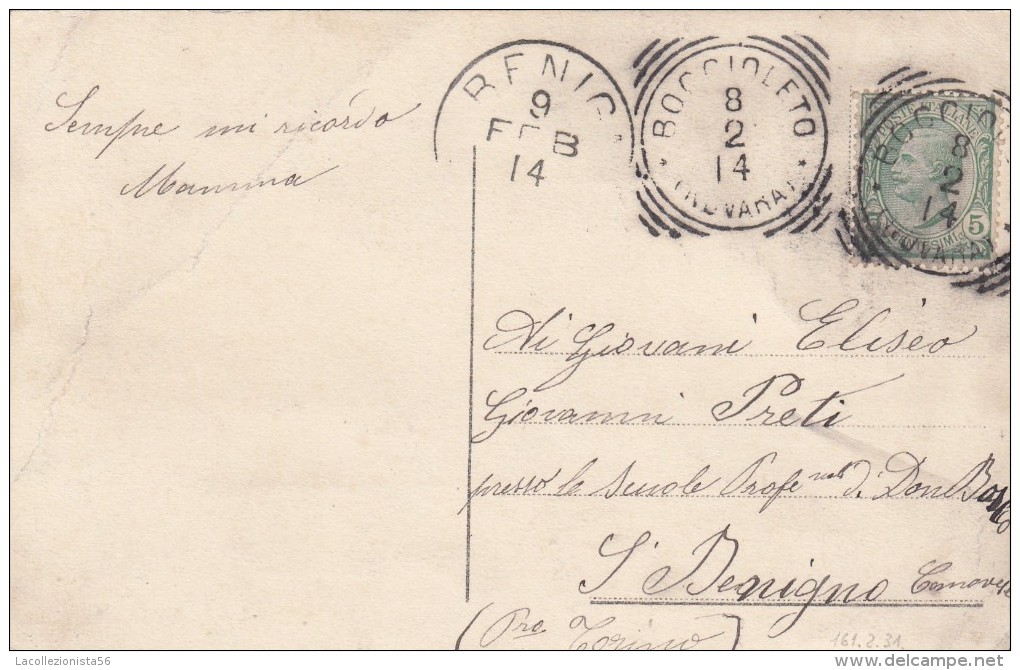 Sempre mi ricordo
Mamma
BENIG
9
FEB
14
BOCCIOLETO
8
2
14
(NOVARA)
POSTE ITALIANE
BOCCIO
8
2
14
(NOVARA)
CENTESIMI 5
Ai Giovani Eliseo
Giovanni Preti
presso le Scuole Profe nali di Don Bosco
S Benigno Canavese
(Pro Torino)
161.2.31
Lacollezionista56
delcampe.net